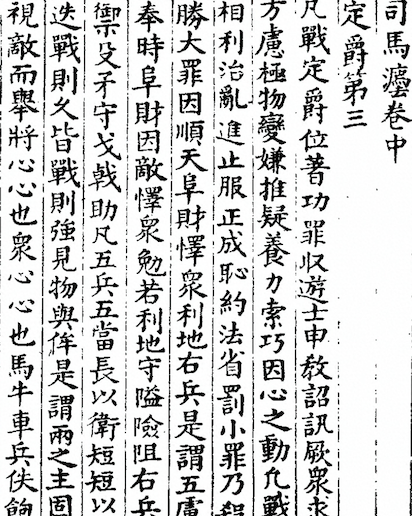 司馬灋卷中
定爵第三
凡戰定爵位著功罪収遊士申敎詔訊厥衆求
方慮極物變嫌推疑養力索巧因心之動凡戰
相利治亂進止服正成恥約法省罰小罪乃殺
勝大罪因順天阜財懌衆利地右兵是謂五慮
奉時阜財因敵懌衆勉若利地守隘險阻右兵
禦殳矛守戈戟助凡五兵五當長以衛短短以
迭戰則久皆戰則強見物與侔是謂兩之主固
視敵而舉將心心也衆心心也馬牛車兵佚飽